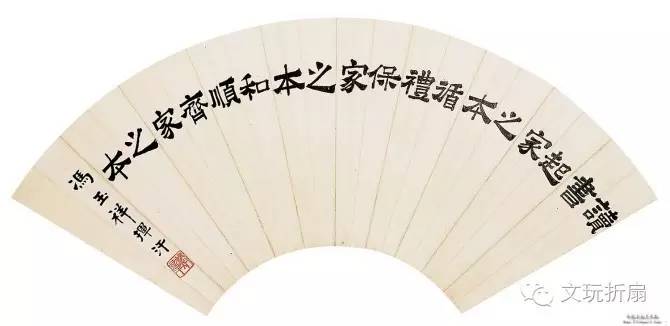 讀書起家之本循禮保家之本和順齊家之本
馮玉祥揮汗
文玩折扇